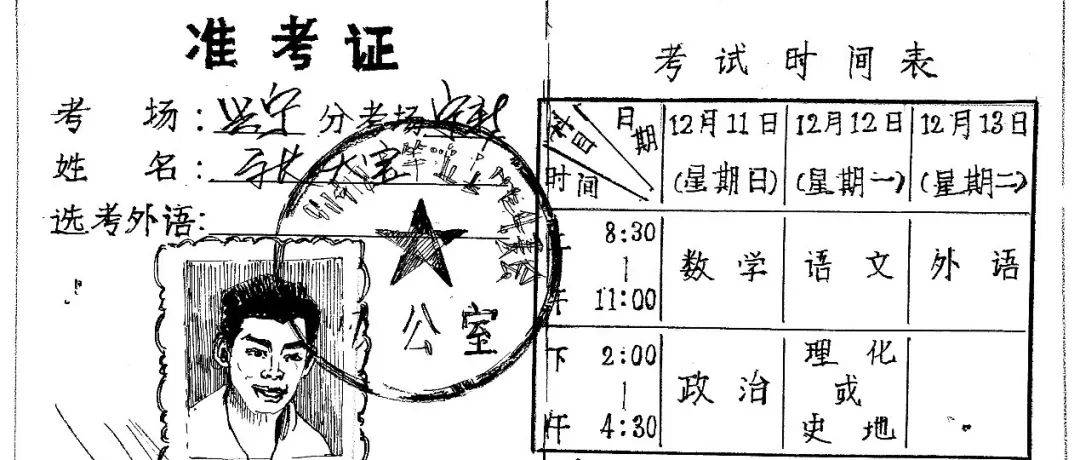 准考证
考 场:兴宁分考场
姓 名:
选考外语:
公室
考试时间表
科目 日期
时间
12月11日 (星期日)
12月12日 (星期一)
12月13日 (星期二)
上午 8:30 | 11:00
数学
语文
外语
下午 2:00 | 4:30
政治
理化或史地